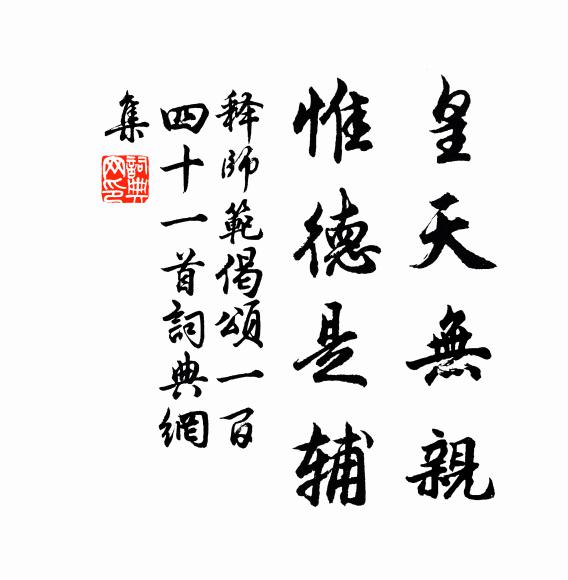 皇天無親
惟德是辅
释師範偈頌一百
四十一首詞典網
集
詞典
网印